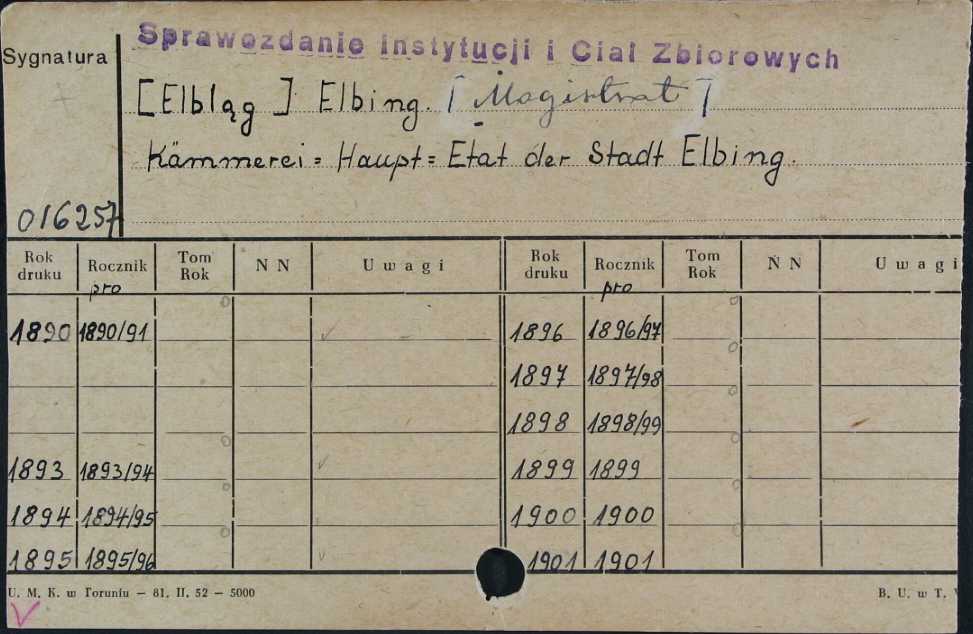 Sprawozdanie Instytucji i Ciał Zbiorowych
Sygnatura
[Elbląg] Elbing. [Magistrat]
Kämmerei = Haupt = Etat der Stadt Elbing.
016257
Rok druku Rocznik pro Tom Rok N N Uwagi Rok druku Rocznik pro Tom Rok N N Uwagi
1890 1890/91 1896 1896/97
1897 1897/98
1898 1898/99
1893 1893/94 1899 1899
1894 1894/95 1900 1900
1895 1895/96 1901 1901
U. M. K. w Toruniu — 81. II. 52 — 5000 B. U. w T.